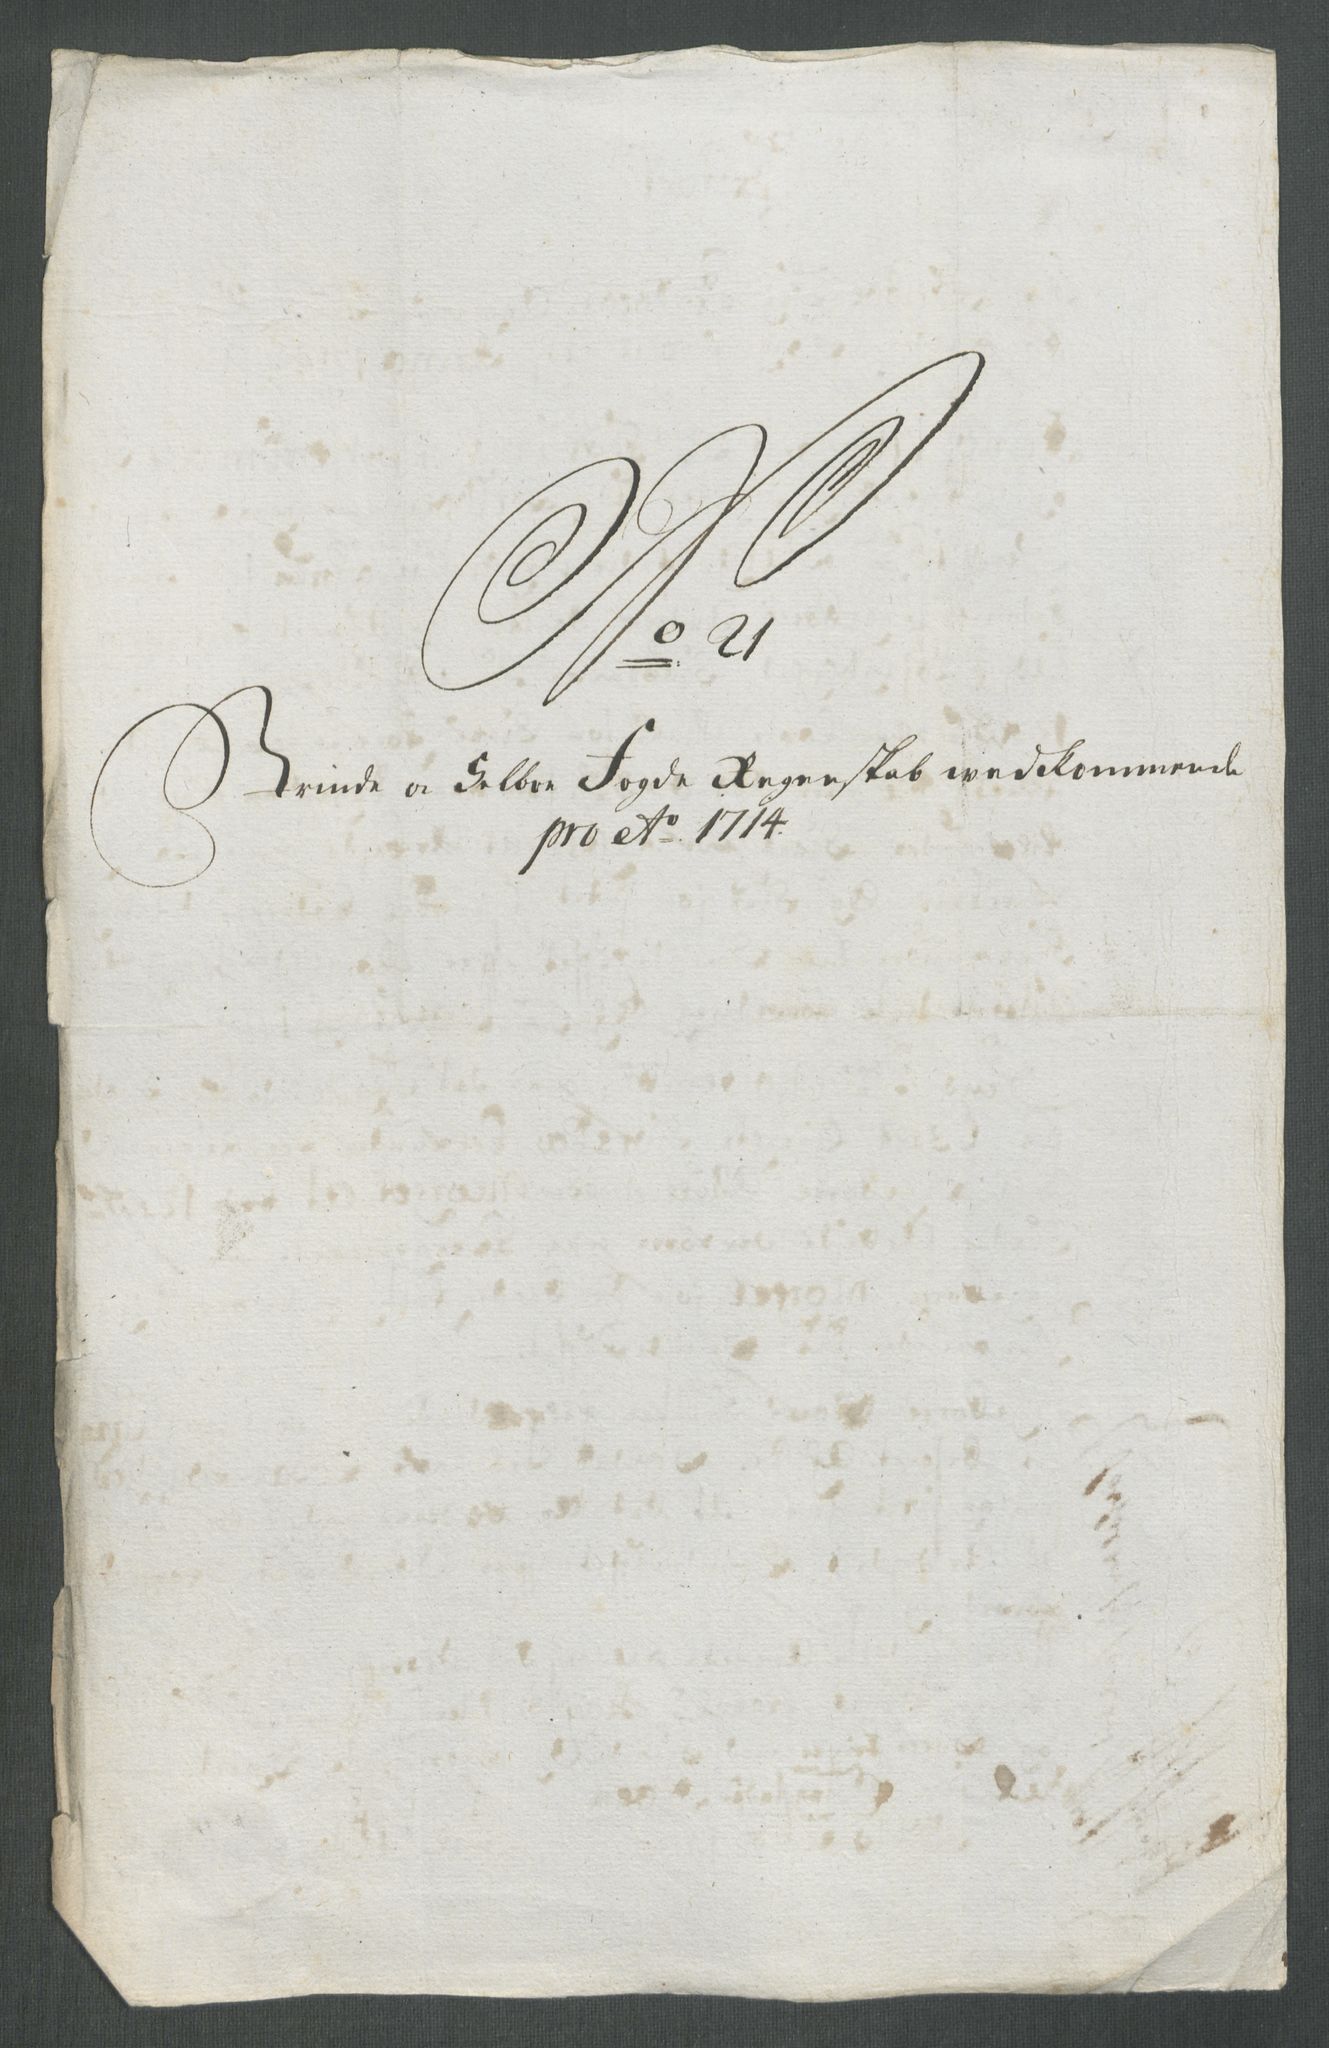 No 21
Strinde oc Selboe Fogde Regenskab wedkommende
pro Ao. 1714.